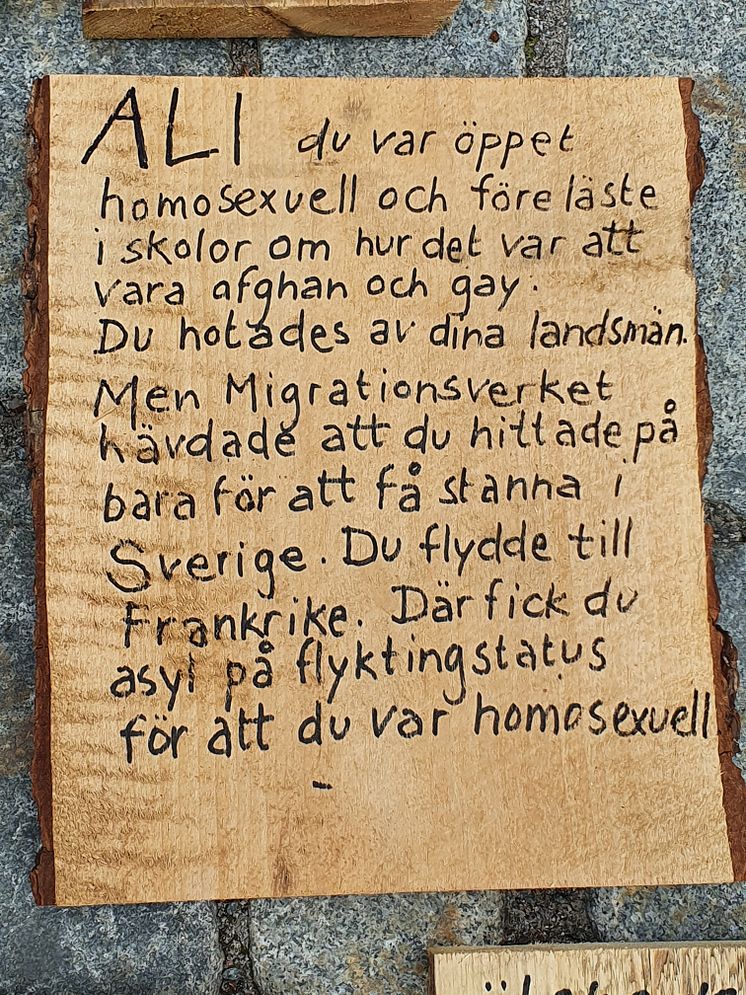 ALI du var öppet
homosexuell och föreläste
i skolor om hur det var att
vara afghan och gay.
Du hotades av dina landsmän.
Men Migrationsverket
hävdade att du hittade på
bara för att få stanna i
Sverige. Du flydde till
Frankrike. Där fick du
asyl på flyktingstatus
för att du var homosexuell
-